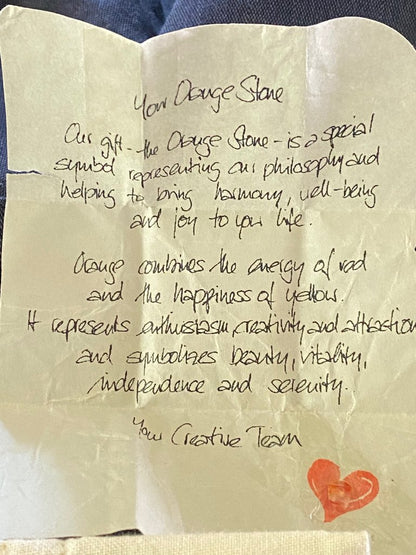 Your Orange Stone
Our gift - the Orange Stone - is a special
symbol representing our philosophy and
helping to bring harmony, well-being
and joy to your life.
Orange combines the energy of red
and the happiness of yellow.
It represents enthusiasm, creativity and attraction
and symbolizes beauty, vitality,
independence and serenity.
Your Creative Team